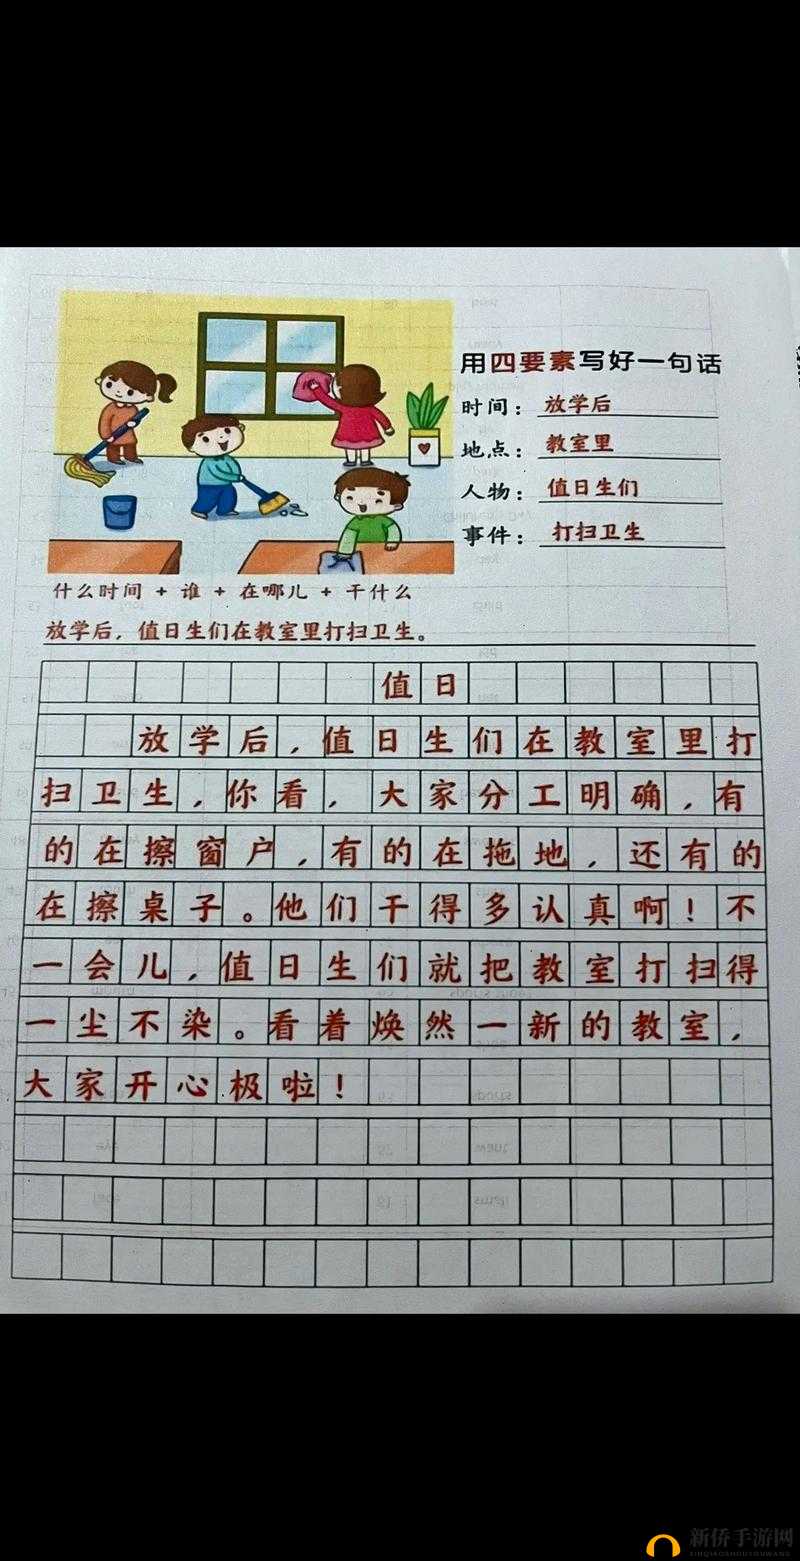 用四要素写好一句话
时间：放学后
地点：教室里
人物：值日生们
事件：打扫卫生
什么时间 + 谁 + 在哪儿 + 干什么
放学后，值日生们在教室里打扫卫生。
值日
放学后，值日生们在教室里打
扫卫生，你看，大家分工明确，有
的在擦窗户，有的在拖地，还有的
在擦桌子。他们干得多认真啊！不
一会儿，值日生们就把教室打扫得
一尘不染。看着焕然一新的教室，
大家开心极啦！
新侨手游网
XINQIAOSHOUYOUWANG